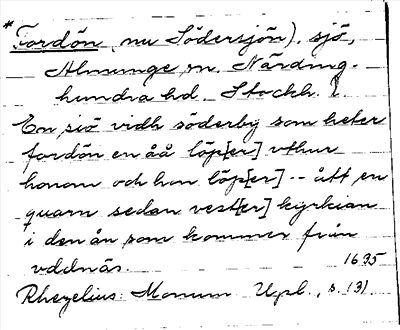 *Fordön (nu Södersjön), sjö,
Almunge sn. Närding-
hundra hd. Stockh. l.
En siö vidh söderby som heter
fordön en åå löp[er] vthur
honom och hon löp[er] -- ått en
quarn sedan vest[er] kyrkian
i den ån som kommer från
vddnäs. 1635
Rhezelius: Monum Upl., s. 131.